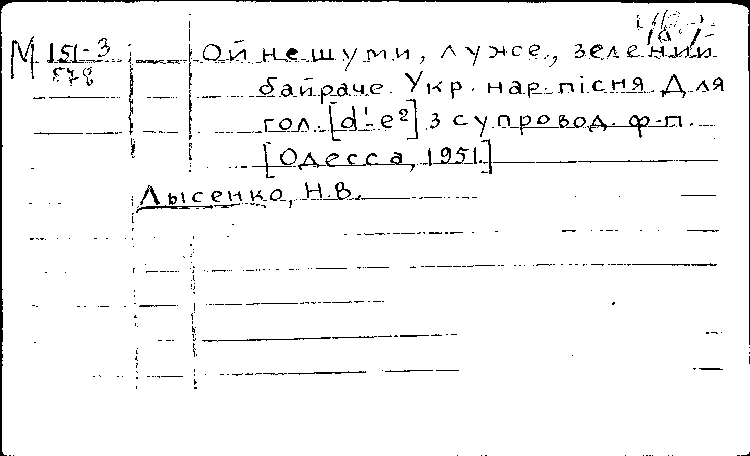 М 151-3 Ой не шуми, луже, зелений
578 байраче. Укр. нар. пісня. Для
гол. [d¹-e²] з супровод. ф-п.
[Одесса, 1951.]
Лысенко, Н.В.